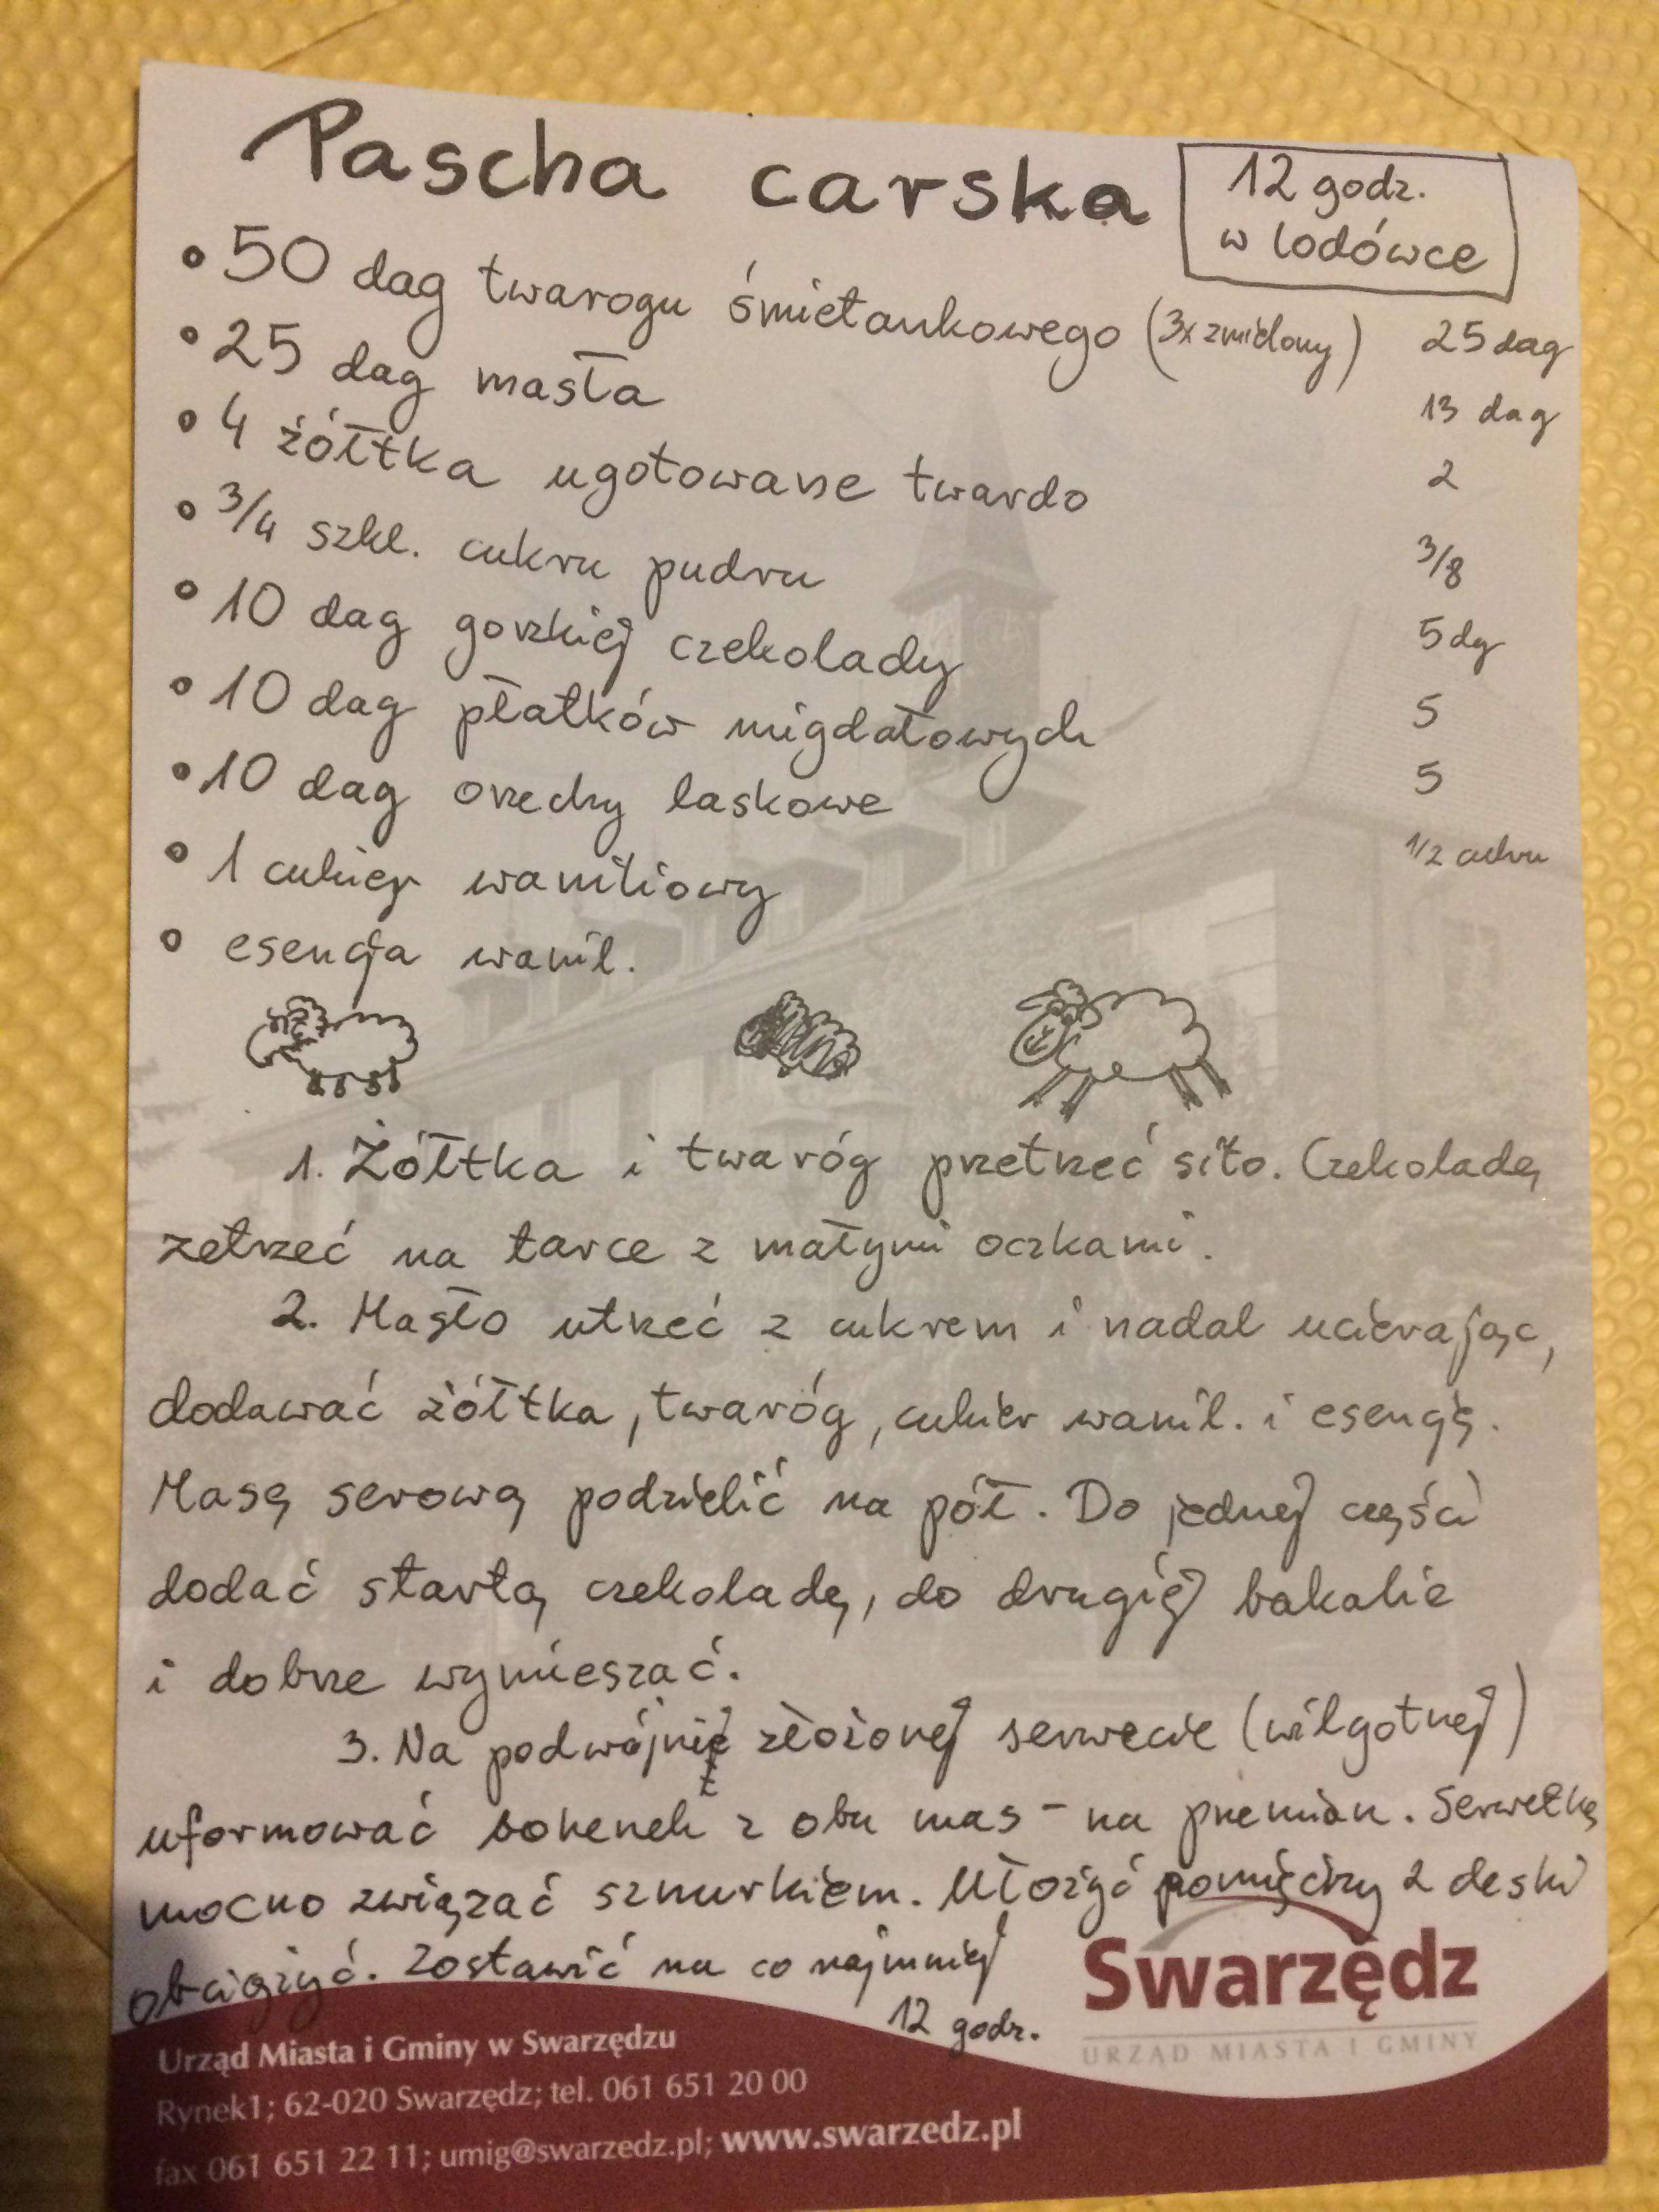 Pascha carska
12 godz.
w lodówce
• 50 dag twarogu śmietankowego (3x zmielony) 25 dag
• 25 dag masła 13 dag
• 4 żółtka ugotowane twardo 2
• 3/4 szkl. cukru pudru 3/8
• 10 dag gorzkiej czekolady 5 dg
• 10 dag płatków migdałowych 5
• 10 dag orzechy laskowe 5
• 1 cukier waniliowy 1/2 cukru
• esencja wanil.
1. Żółtka i twaróg przetrzeć sito. Czekoladę
zetrzeć na tarce z małymi oczkami.
2. Masło utrzeć z cukrem i nadal ucierając,
dodawać żółtka, twaróg, cukier wanil. i esencję.
Masę serową podzielić na pół. Do jednej części
dodać startą czekoladę, do drugiej bakalie
i dobrze wymieszać.
3. Na podwójnie złożonej serwecie (wilgotnej)
uformować bohenek z obu mas - na przemian. Serwetkę
mocno związać sznurkiem. Ułożyć pomiędzy 2 deski
obciążyć. Zostawić na co najmniej
12 godz.
Swarzędz
URZĄD MIASTA I GMINY
Urząd Miasta i Gminy w Swarzędzu
Rynek1; 62-020 Swarzędz; tel. 061 651 20 00
fax 061 651 22 11; umig@swarzedz.pl; www.swarzedz.pl